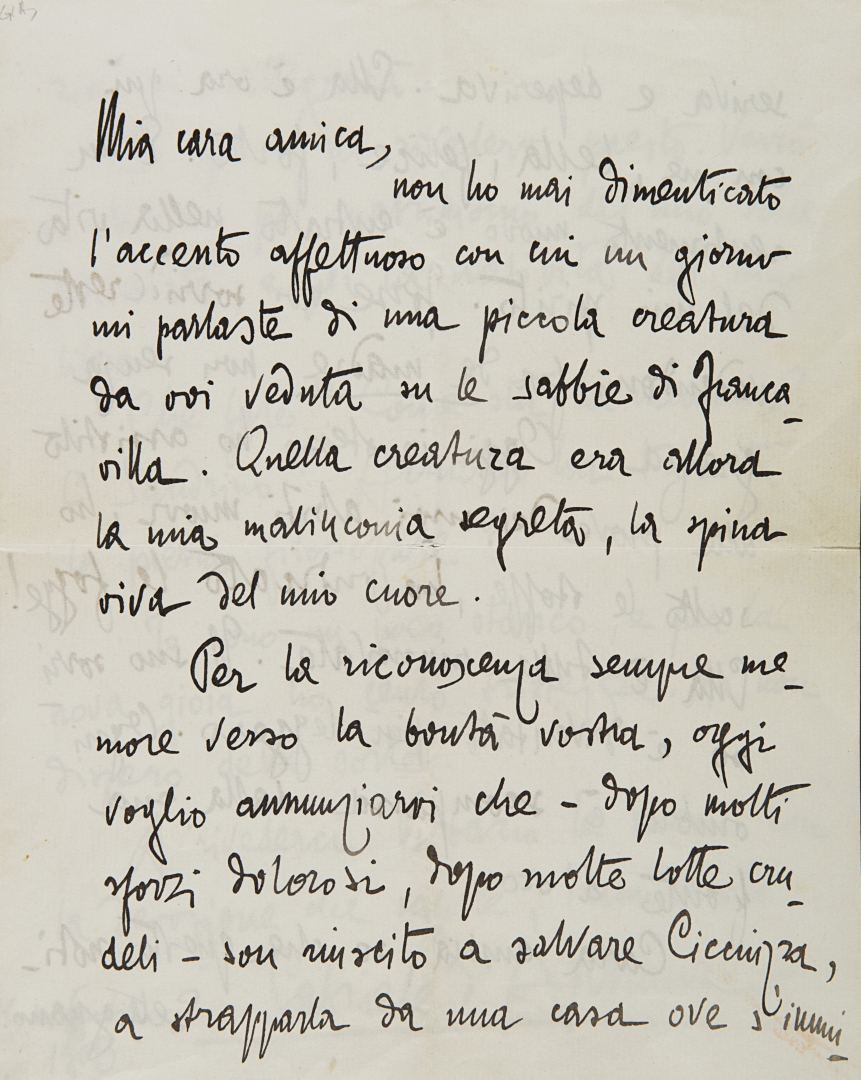 Mia cara amica,
non ho mai dimenticato
l'accento affettuoso con cui un giorno
mi parlaste di una piccola creatura
da voi veduta su le sabbie di Franca-
villa. Quella creatura era allora
la mia malinconia segreta, la spina
viva del mio cuore.
Per la riconoscenza sempre me-
more verso la bontà vostra, oggi
voglio annunziarvi che – dopo molti
sforzi dolorosi, dopo molte lotte cru-
deli – son riuscito a salvare Cicciuzza,
a strapparla da una casa ove s'immi-